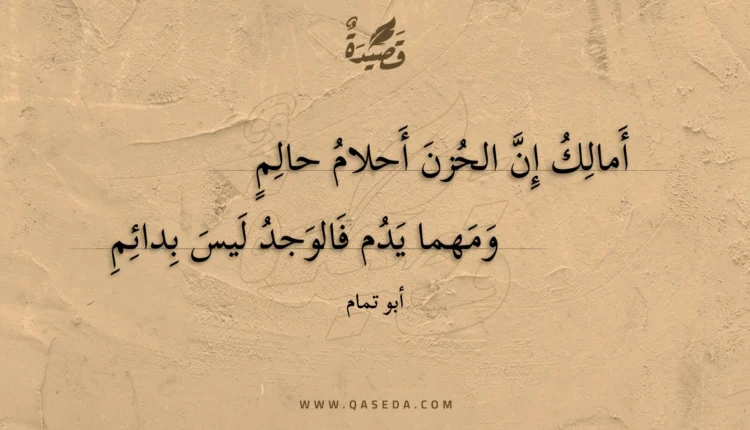 قَصِيْدَةٌ
أَمالِكُ إِنَّ الحُزنَ أَحلامُ حالِمٍ
وَمَهما يَدُم فَالوَجدُ لَيسَ بِدائِمِ
أبو تمام
WWW.QASEDA.COM